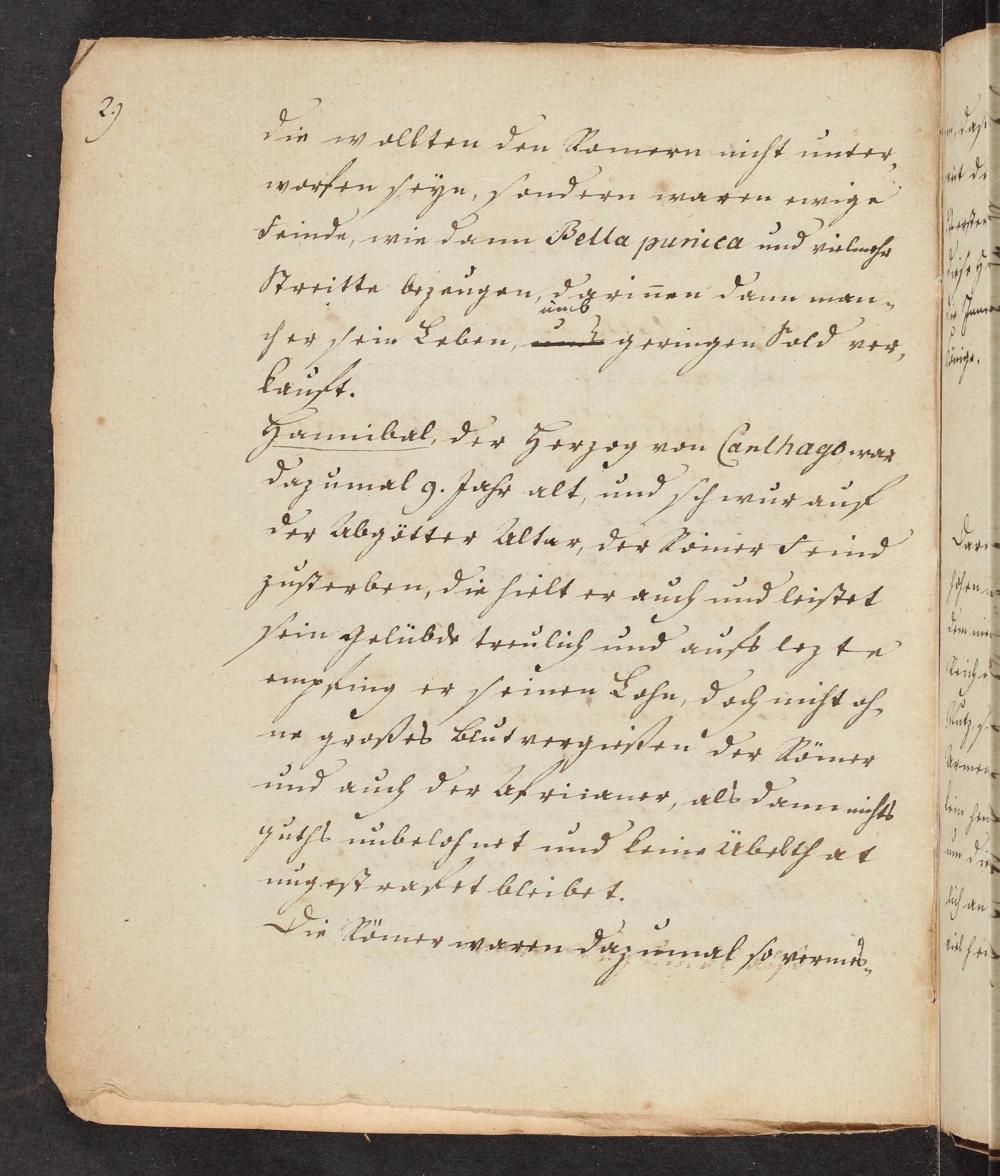 2.)
die wollten den Römern nicht unter,
worfen seyn, sondern waren ewige
Feinde, wie dann Bella punica und vielmehr
Streitte bezeugen, darin̄en dann man-
umb
cher sein Leben, und geringen Sold ver,
kauft.
Hannibal, der Herzog von Carthago war
dazumal 9. Jahr alt, und schwur auf
der Abgötter Altar, der Römer Feind
zusterben, die hielt er auch und leistet
sein Gelübde treulich und aufs lezte
empfing er seinen Lohn, doch nicht oh-
ne großes Blutvergießen der Römer
und auch der Africaner, als dann nichts
guths unbelohnet und keine Übelthat
ungestrafet bleibet.
Die Römer waren dazumal so vermes-